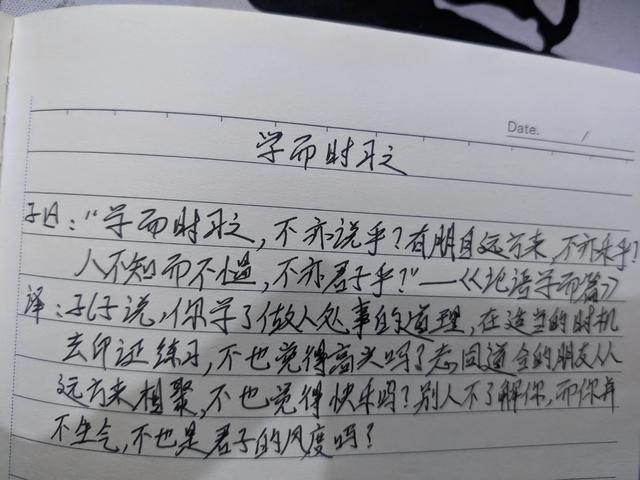 Date. /
学而时习之
子曰：“学而时习之，不亦说乎？有朋自远方来，不亦乐乎？
人不知而不愠，不亦君子乎？”——《论语学而篇》
译：孔子说，你学了做人处事的道理，在适当的时机
去印证练习，不也觉得高兴吗？志同道合的朋友从
远方来相聚，不也觉得快乐吗？别人不了解你，而你并
不生气，不也是君子的风度吗？